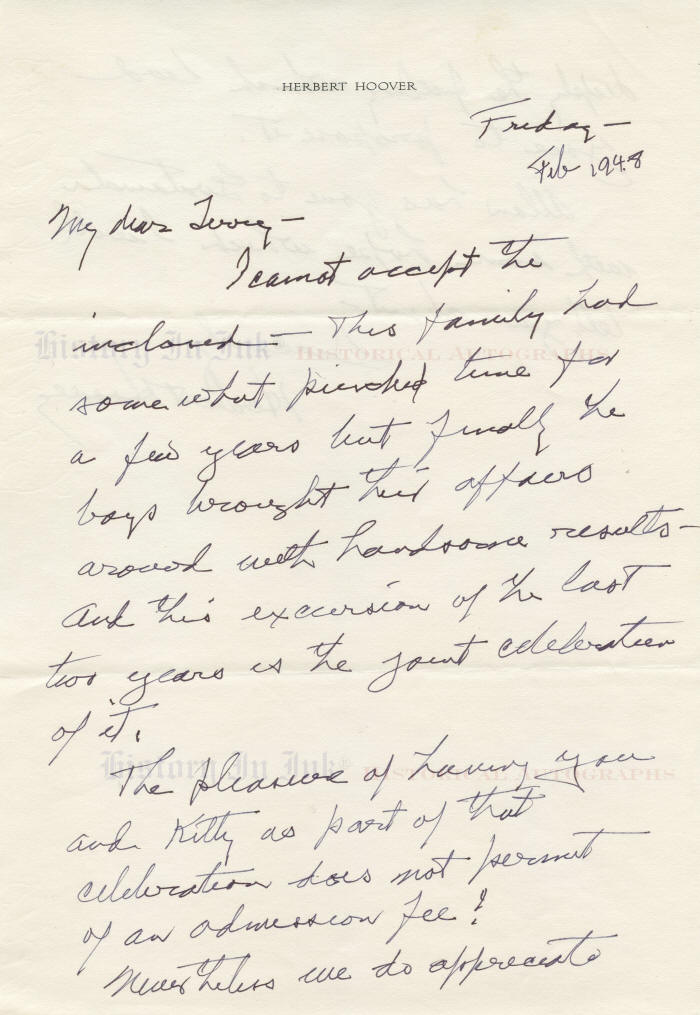 HERBERT HOOVER
Friday —
Feb 1948
My dear —
I cannot accept the
inclosed — This family had
somewhat pinched time for
a few years but finally the
boys brought their affairs
around with handsome results —
And this excursion of the last
two years is the joint celebration
of it.
The pleasure of having you
and Kitty as part of that
celebration does not permit
of an admission fee!
Nevertheless we do appreciate
History In Ink® HISTORICAL AUTOGRAPHS
History In Ink® HISTORICAL AUTOGRAPHS